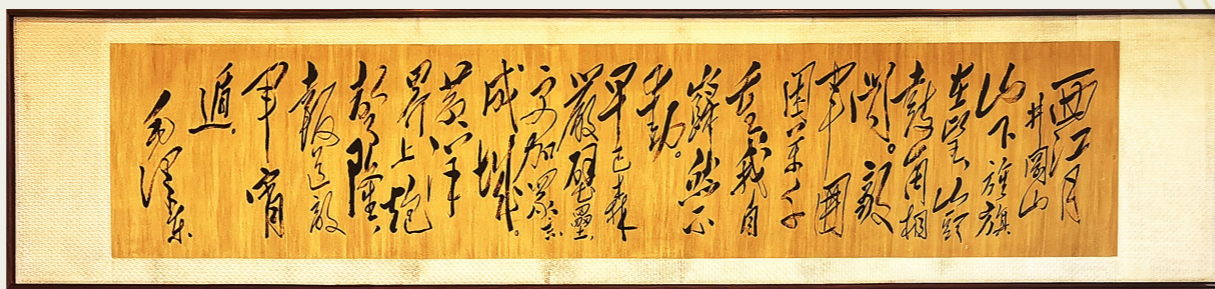 西江月
井岡山
山下旌旗
在望山頭
鼓角相
聞。敵
軍圍
困萬千
重我自
巋然不
動。
早已森
嚴壁壘
更加衆志
成城。
黃洋
界上炮
聲隆、
報道敵
軍宵
遁。
毛澤東